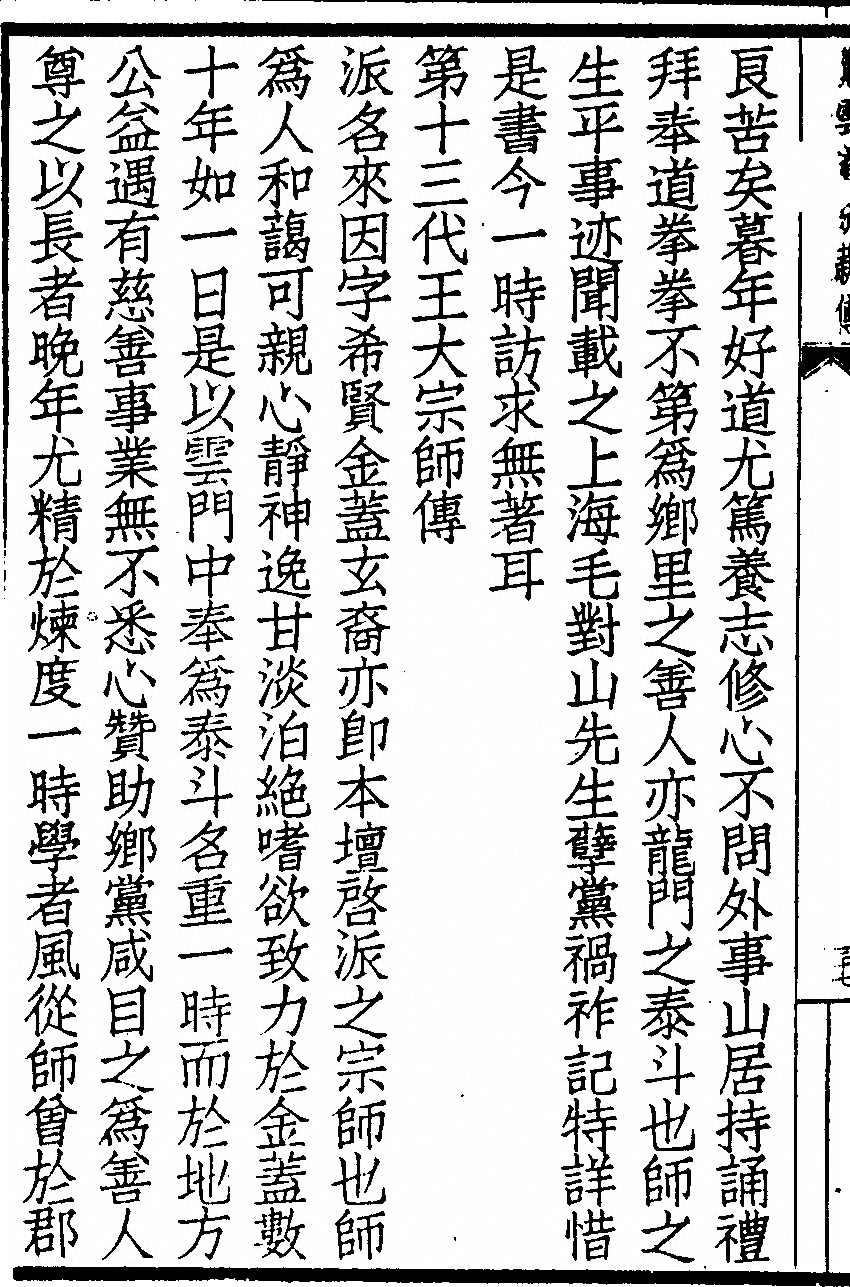 良苦矣暮年好道尤篤養志修心不問外事山居持誦禮
拜奉道拳拳不第爲鄉里之善人亦龍門之泰斗也師之
生平事迹聞載之上海毛對山先生孽黨禍祚記特詳惜
是書今一時訪求無著耳
第十三代王大宗師傳
派名來因字希賢金蓋玄裔亦卽本壇啓派之宗師也師
爲人和藹可親心靜神逸甘淡泊絕嗜欲致力於金蓋數
十年如一日是以雲門中奉爲泰斗名重一時而於地方
公益遇有慈善事業無不悉心贊助鄉黨咸目之爲善人
尊之以長者晚年尤精於煉度一時學者風從師曾於郡